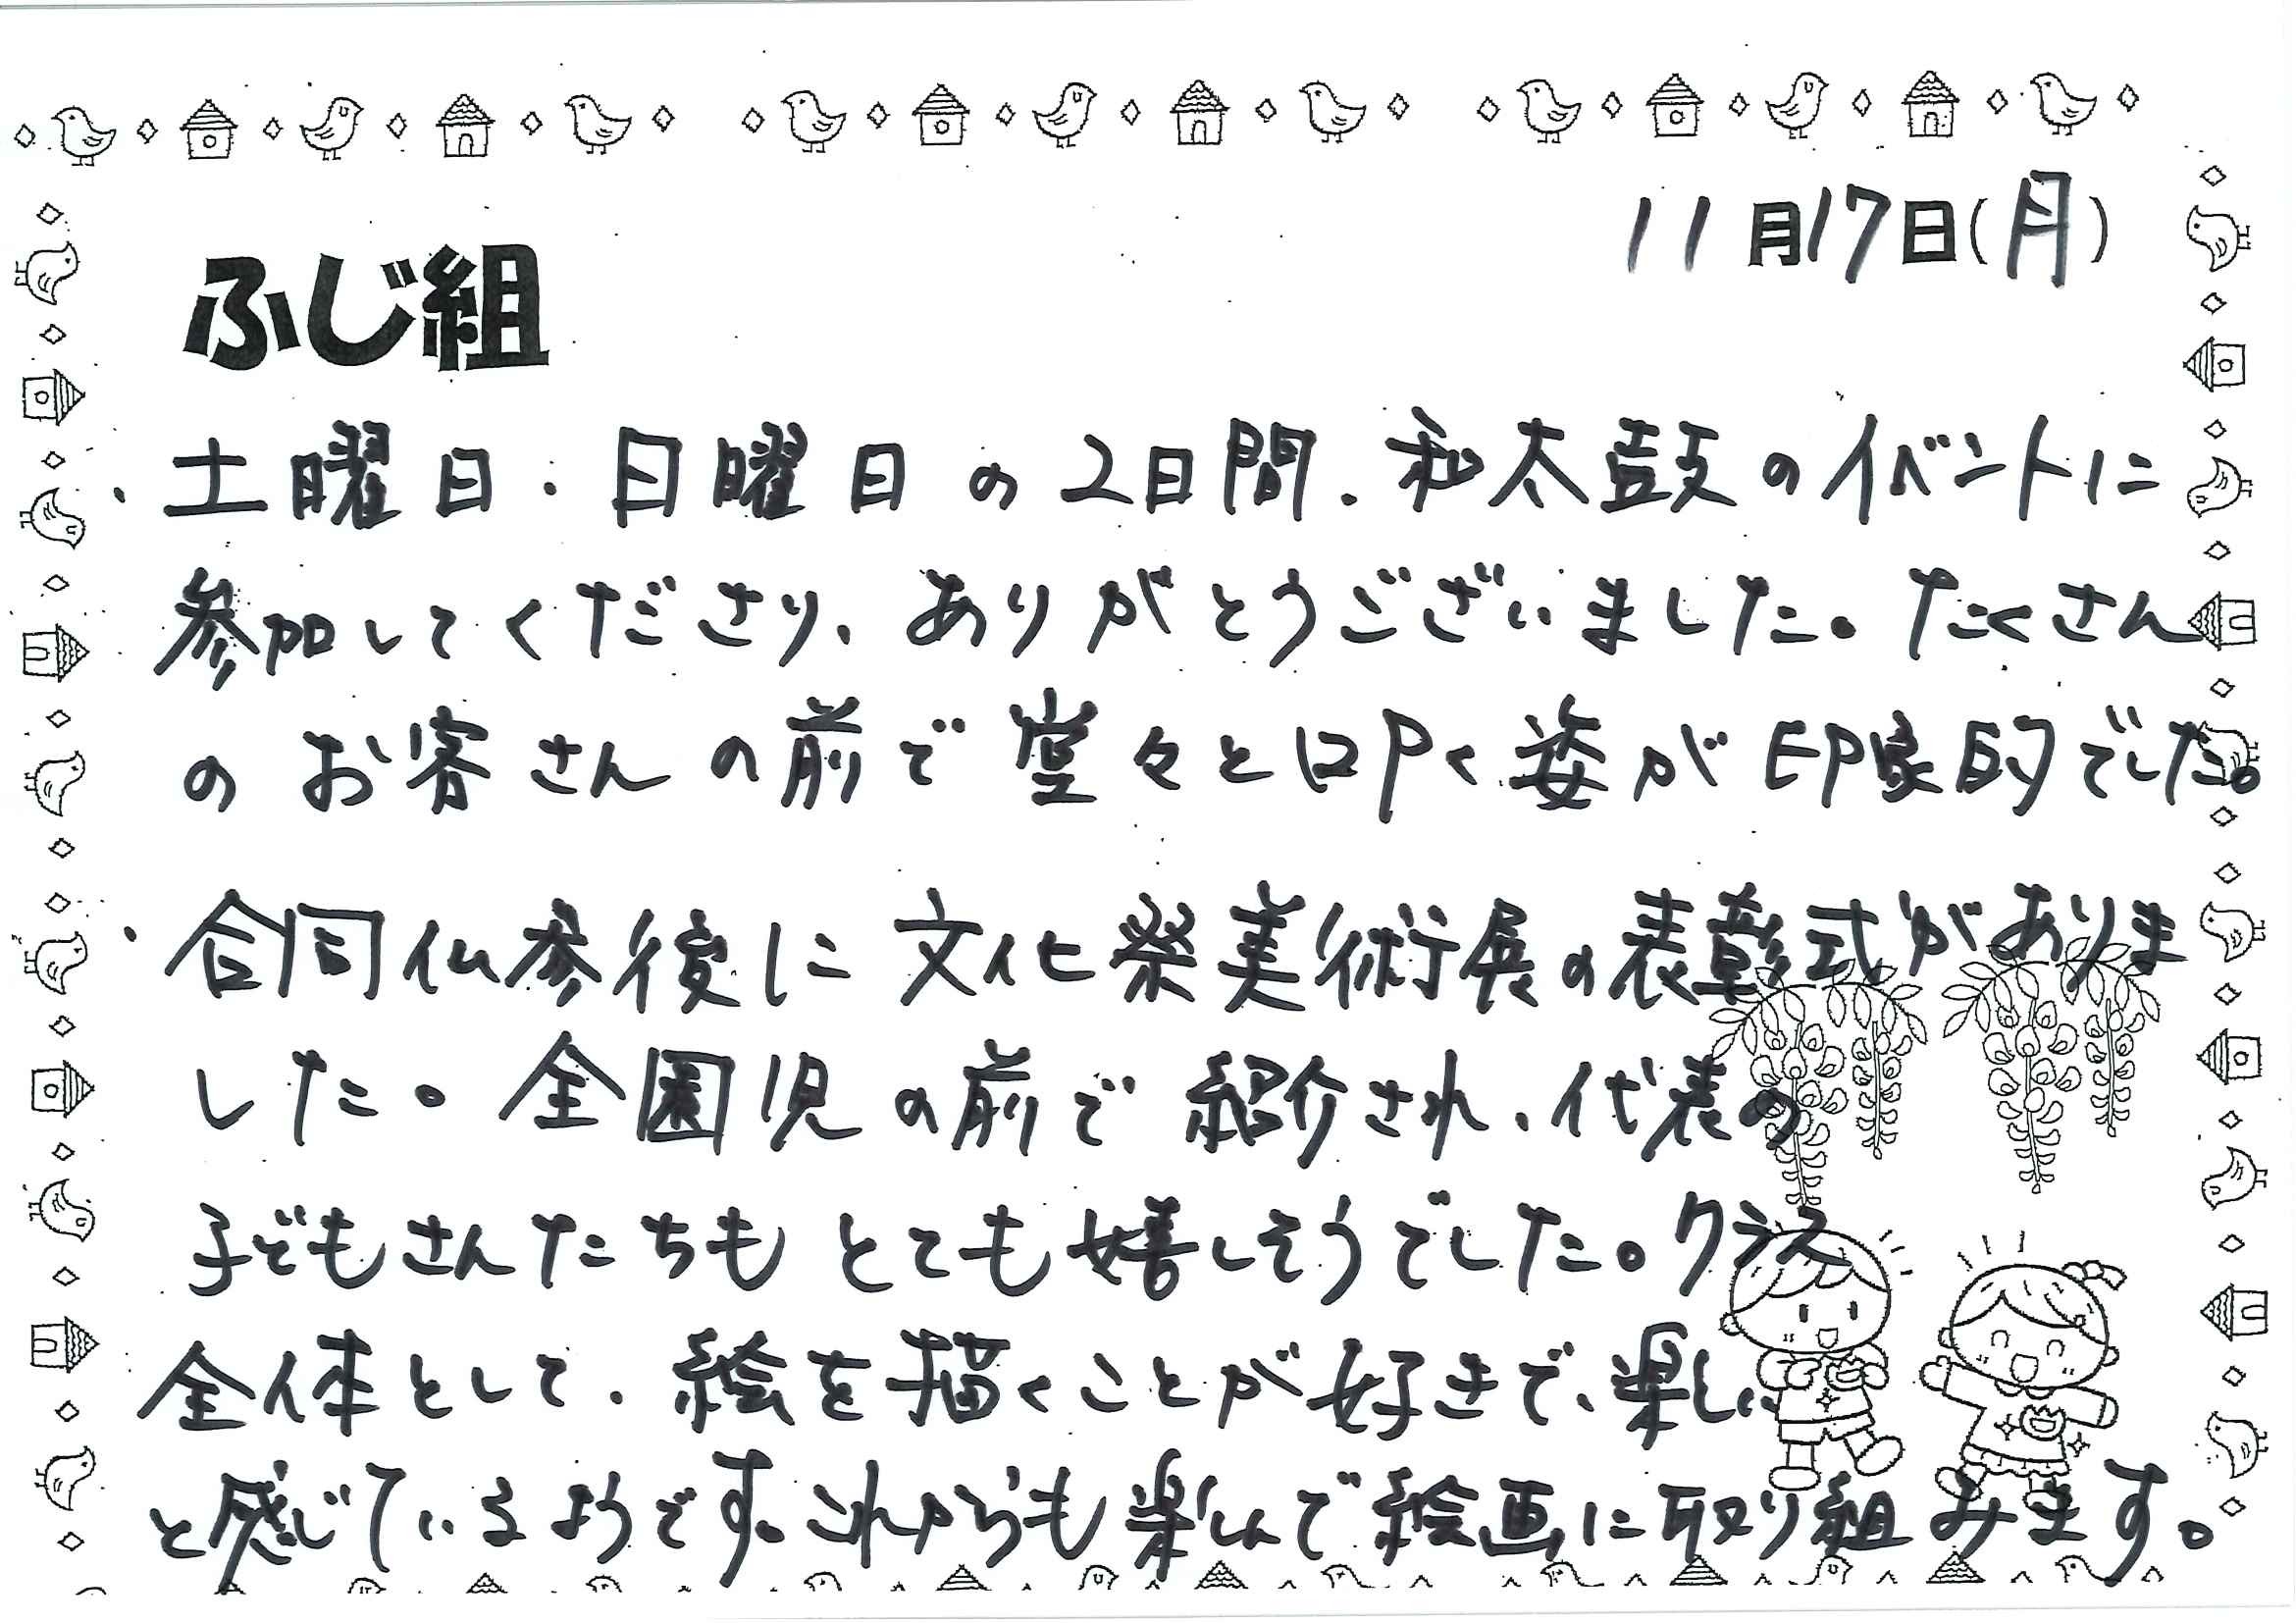 11月17日(月)
ふじ組
・土曜日・日曜日の2日間、和太鼓のイベントに
参加してくださり、ありがとうございました。たくさん
のお客さんの前で堂々と叩く姿が印象的でした。
・合同仏参後に文化祭美術展の表彰式がありま
した。全園児の前で紹介され、代表の
子どもさんたちもとても嬉しそうでした。クラス
全体として、絵を描くことが好きで、楽しい
と感じているようです。これからも楽しんで絵画に取り組みます。